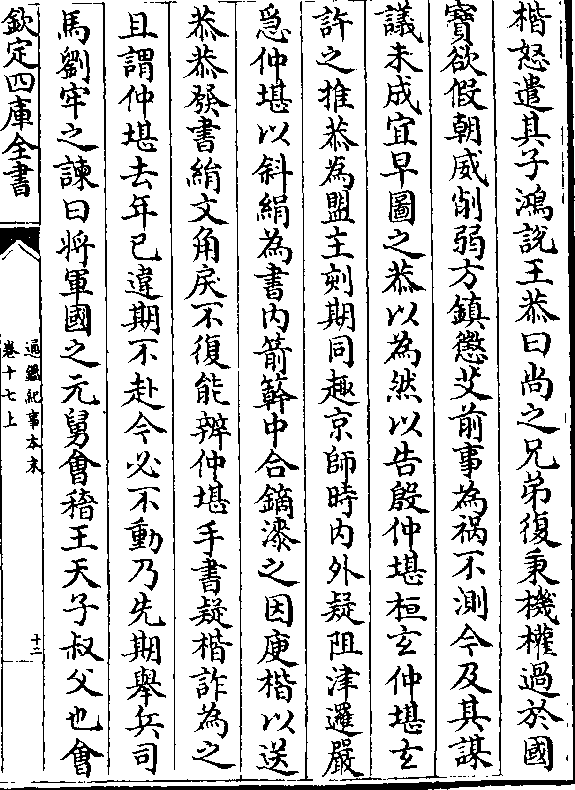 楷怒遣其子鴻說王恭曰尚之兄弟復秉機權過於國
寳欲假朝威削弱方鎮懲艾前事為禍不測今及其謀
議未成宜早圖之恭以為然以告殷仲堪桓玄仲堪玄
許之推恭為盟主刻期同趣京師時内外疑阻津邏嚴
急仲堪以斜絹為書内箭簳中合鏑漆之因庾楷以送
恭恭發書絹文角戾不復能辨仲堪手書疑楷詐為之
且謂仲堪去年已違期不赴今必不動乃先期舉兵司
馬劉牢之諫曰將軍國之元舅會稽王天子叔父也會
欽定四庫全書
通鑑紀事本末
卷十七上
十三